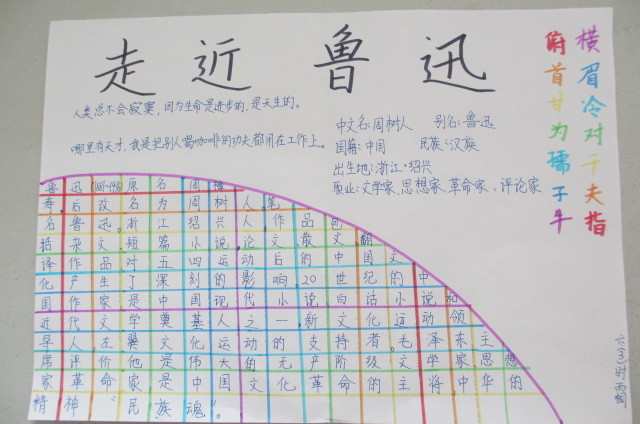 走近鲁迅
横眉冷对千夫指
俯首甘为孺子牛
人类总不会寂寞，因为生命是进步的，是天生的。
哪里有天才，我是把别人喝咖啡的功夫都用在工作上。
中文名：周树人 别名：鲁迅
国籍：中国 民族：汉族
出生地：浙江·绍兴
职业：文学家、思想家、革命家、评论家
鲁迅 原名周樟
寿，后改名为周树人，笔
名鲁迅。浙江绍兴人作品包
括杂文，短篇小说，论文，散文，翻
译作品对五四运动后的中国文
化产生了深刻的影响，20世纪的中
国作家是中国现代小说，白话小说和
近代文学奠基人之一，新文化运动领
导人，左翼文化运动的支持者，毛泽东主
席评价他是伟大的无产阶级文学家思想
家革命家是中国文化革命的主将中华的
精神“民族魂”。
六(3)时雨